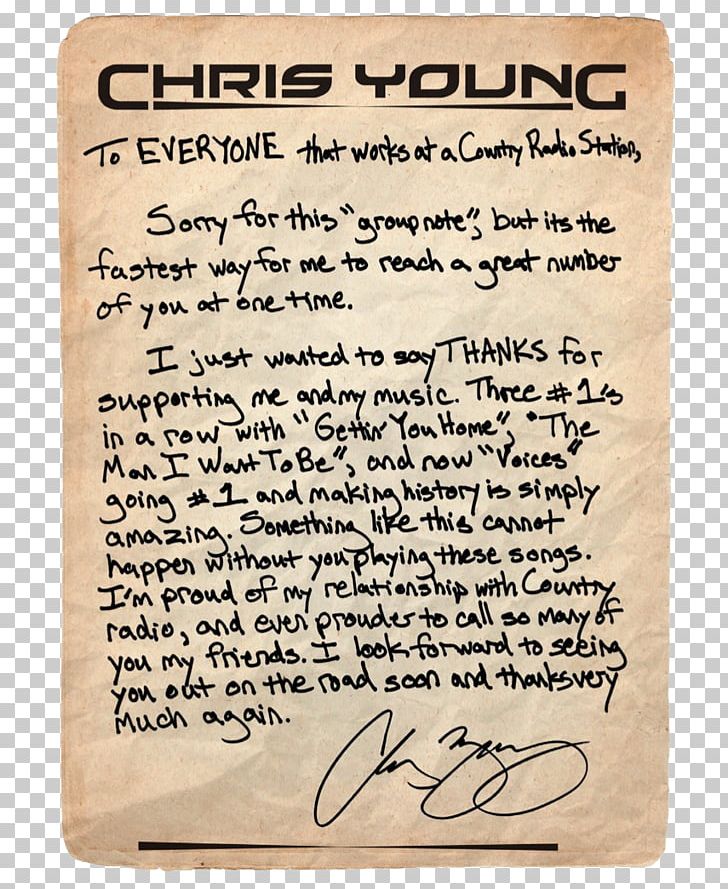 CHRIS YOUNG
To EVERYONE that works at a Country Radio Station,
Sorry for this "group note", but its the
fastest way for me to reach a great number
of you at one time.
I just wanted to say THANKS for
supporting me and my music. Three #1's
in a row with "Gettin' You Home", "The
Man I Want To Be", and now "Voices"
going #1 and making history is simply
amazing. Something like this cannot
happen without you playing these songs.
I'm proud of my relationship with Country
radio, and even prouder to call so many of
you my friends. I look forward to seeing
you out on the road soon and thanks very
much again.
Chris Young